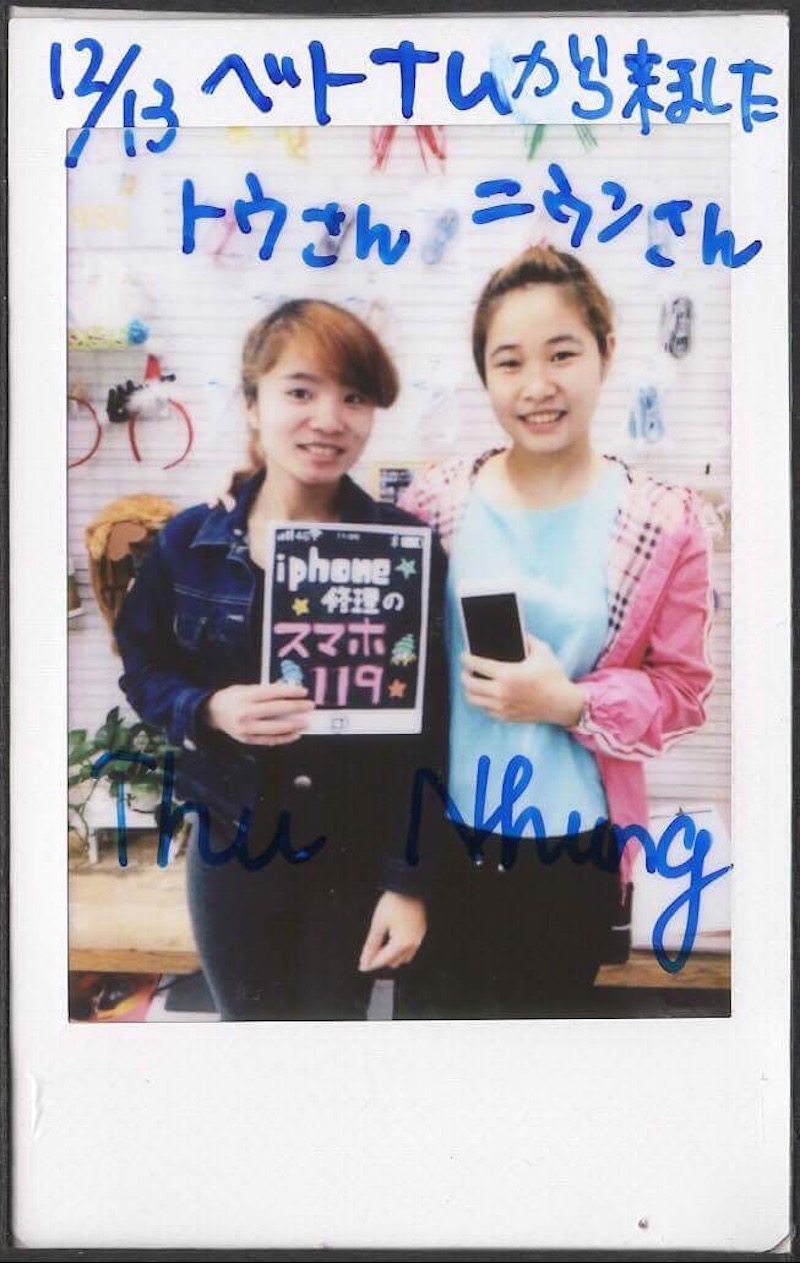 12/13 ベトナムから来ました
トウさん ニウンさん
4G
iphone
修理の
スマホ
119
Thu Nhung